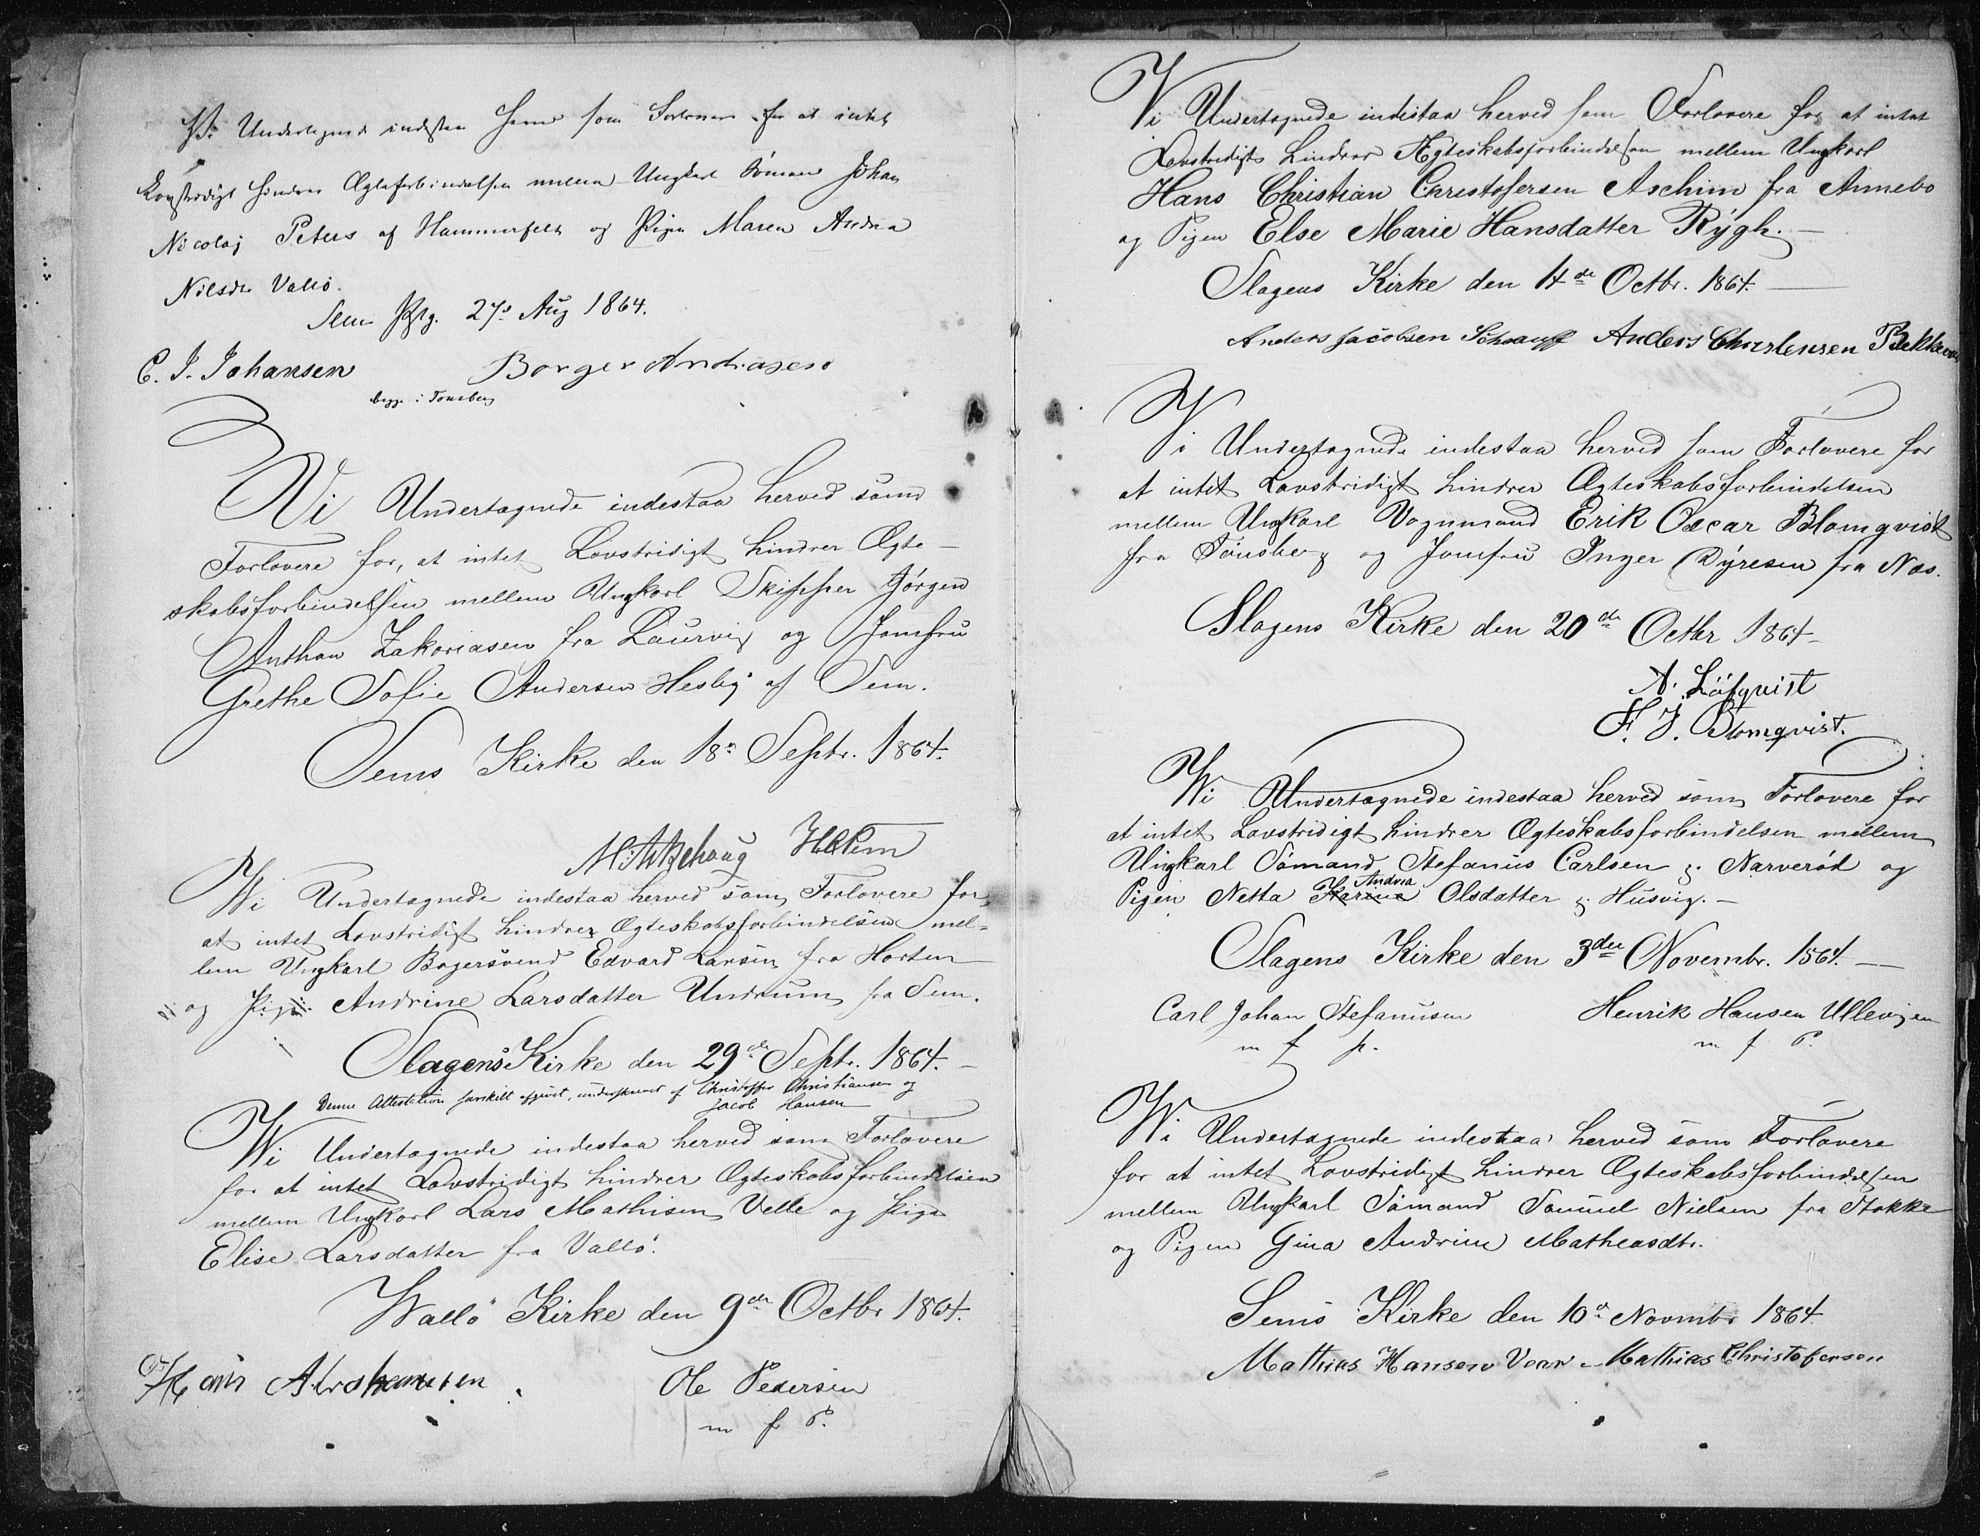 Vi Undertegnede indestaa herved som Forlovere for at intet
Lovstridigt hindrer Ægteforbindelsen mellem Ungkarl Sømand Johan
Nicolaj Peters af Hammerfest og Pigen Maren Andrea
Nilsdr Vallö.
Sem Pgg. 27de Aug 1864.
C. J. Johansen Borger Andreasen
begge i Tønsberg
Vi Undertegnede indestaa herved som
Forlovere for, at intet Lovstridigt hindrer Ægte-
skabsforbindelsen mellem Ungkarl Skipper Jørgen
Anthon Zakariasen fra Laurvig og Jomfru
Grethe Sofie Andersen Hesby af Sem.
Sems Kirke den 18de Septr. 1864.
Vi Undertegnede indestaa herved som Forlovere for,
at intet Lovstridigt hindrer Ægteskabsforbindelsen mel-
lem Ungkarl Bagersvend Edvard Larsen fra Horten
og Pige Andrine Larsdatter Undrum fra Sem.
Slagens Kirke den 29de Septr. 1864.
Denne Attestation særskilt afgivet, underskrevet af Christoffer Christiansen og
Jacob Hansen
Vi Undertegnede indestaa herved som Forlovere
for at intet Lovstridigt hindrer Ægteskabsforbindelsen
mellem Ungkarl Lars Mathisen Velle og Pige
Elise Larsdatter fra Vallö.
Wallö Kirke den 9de Octbr 1864.
Hans Abrahamsen Ole Pedersen
m f P.
Vi Undertegnede indestaa herved som Forlovere for at intet
Lovstridigt hindrer Ægteskabsforbindelsen mellem Ungkarl
Hans Christian Christofersen Aschim fra Annebo
og Pigen Else Marie Hansdatter Rygh. —
Slagens Kirke den 14de Octbr. 1864. —
Anders Jacobsen Anders Christensen Bekkevar
Vi Undertegnede indestaa herved som Forlovere for
at intet Lovstridigt hindrer Ægteskabsforbindelsen
mellem Ungkarl Vognmand Erik Oscar Blomqvist
fra Tønsberg og Jomfru Inger Dyresen fra Næs.
Slagens Kirke den 20de Octbr 1864
A. Löfqvist
F. J. Blomqvist.
Vi Undertegnede indestaa herved som Forlovere for
at intet Lovstridigt hindrer Ægteskabsforbindelsen mellem
Ungkarl Sømand Stefanus Carlsen p. Narverød og
Pigen Netta Karine Andrea Olsdatter p. Husvig. —
Slagens Kirke den 3die Novembr. 1864. —
Carl Johan Stefanusen Henrik Hansen Ullevigen
m f p. m f P.
Vi Undertegnede indestaa herved som Forlovere
for at intet Lovstridigt hindrer Ægteskabsforbindelsen
mellem Ungkarl Sømand Samuel Nielsen fra Stokke
og Pigen Gina Andrine Matheasdtr.
Sems Kirke den 10de Novmbr 1864.
Mathias Hansen Vear – Mathias Christofersen